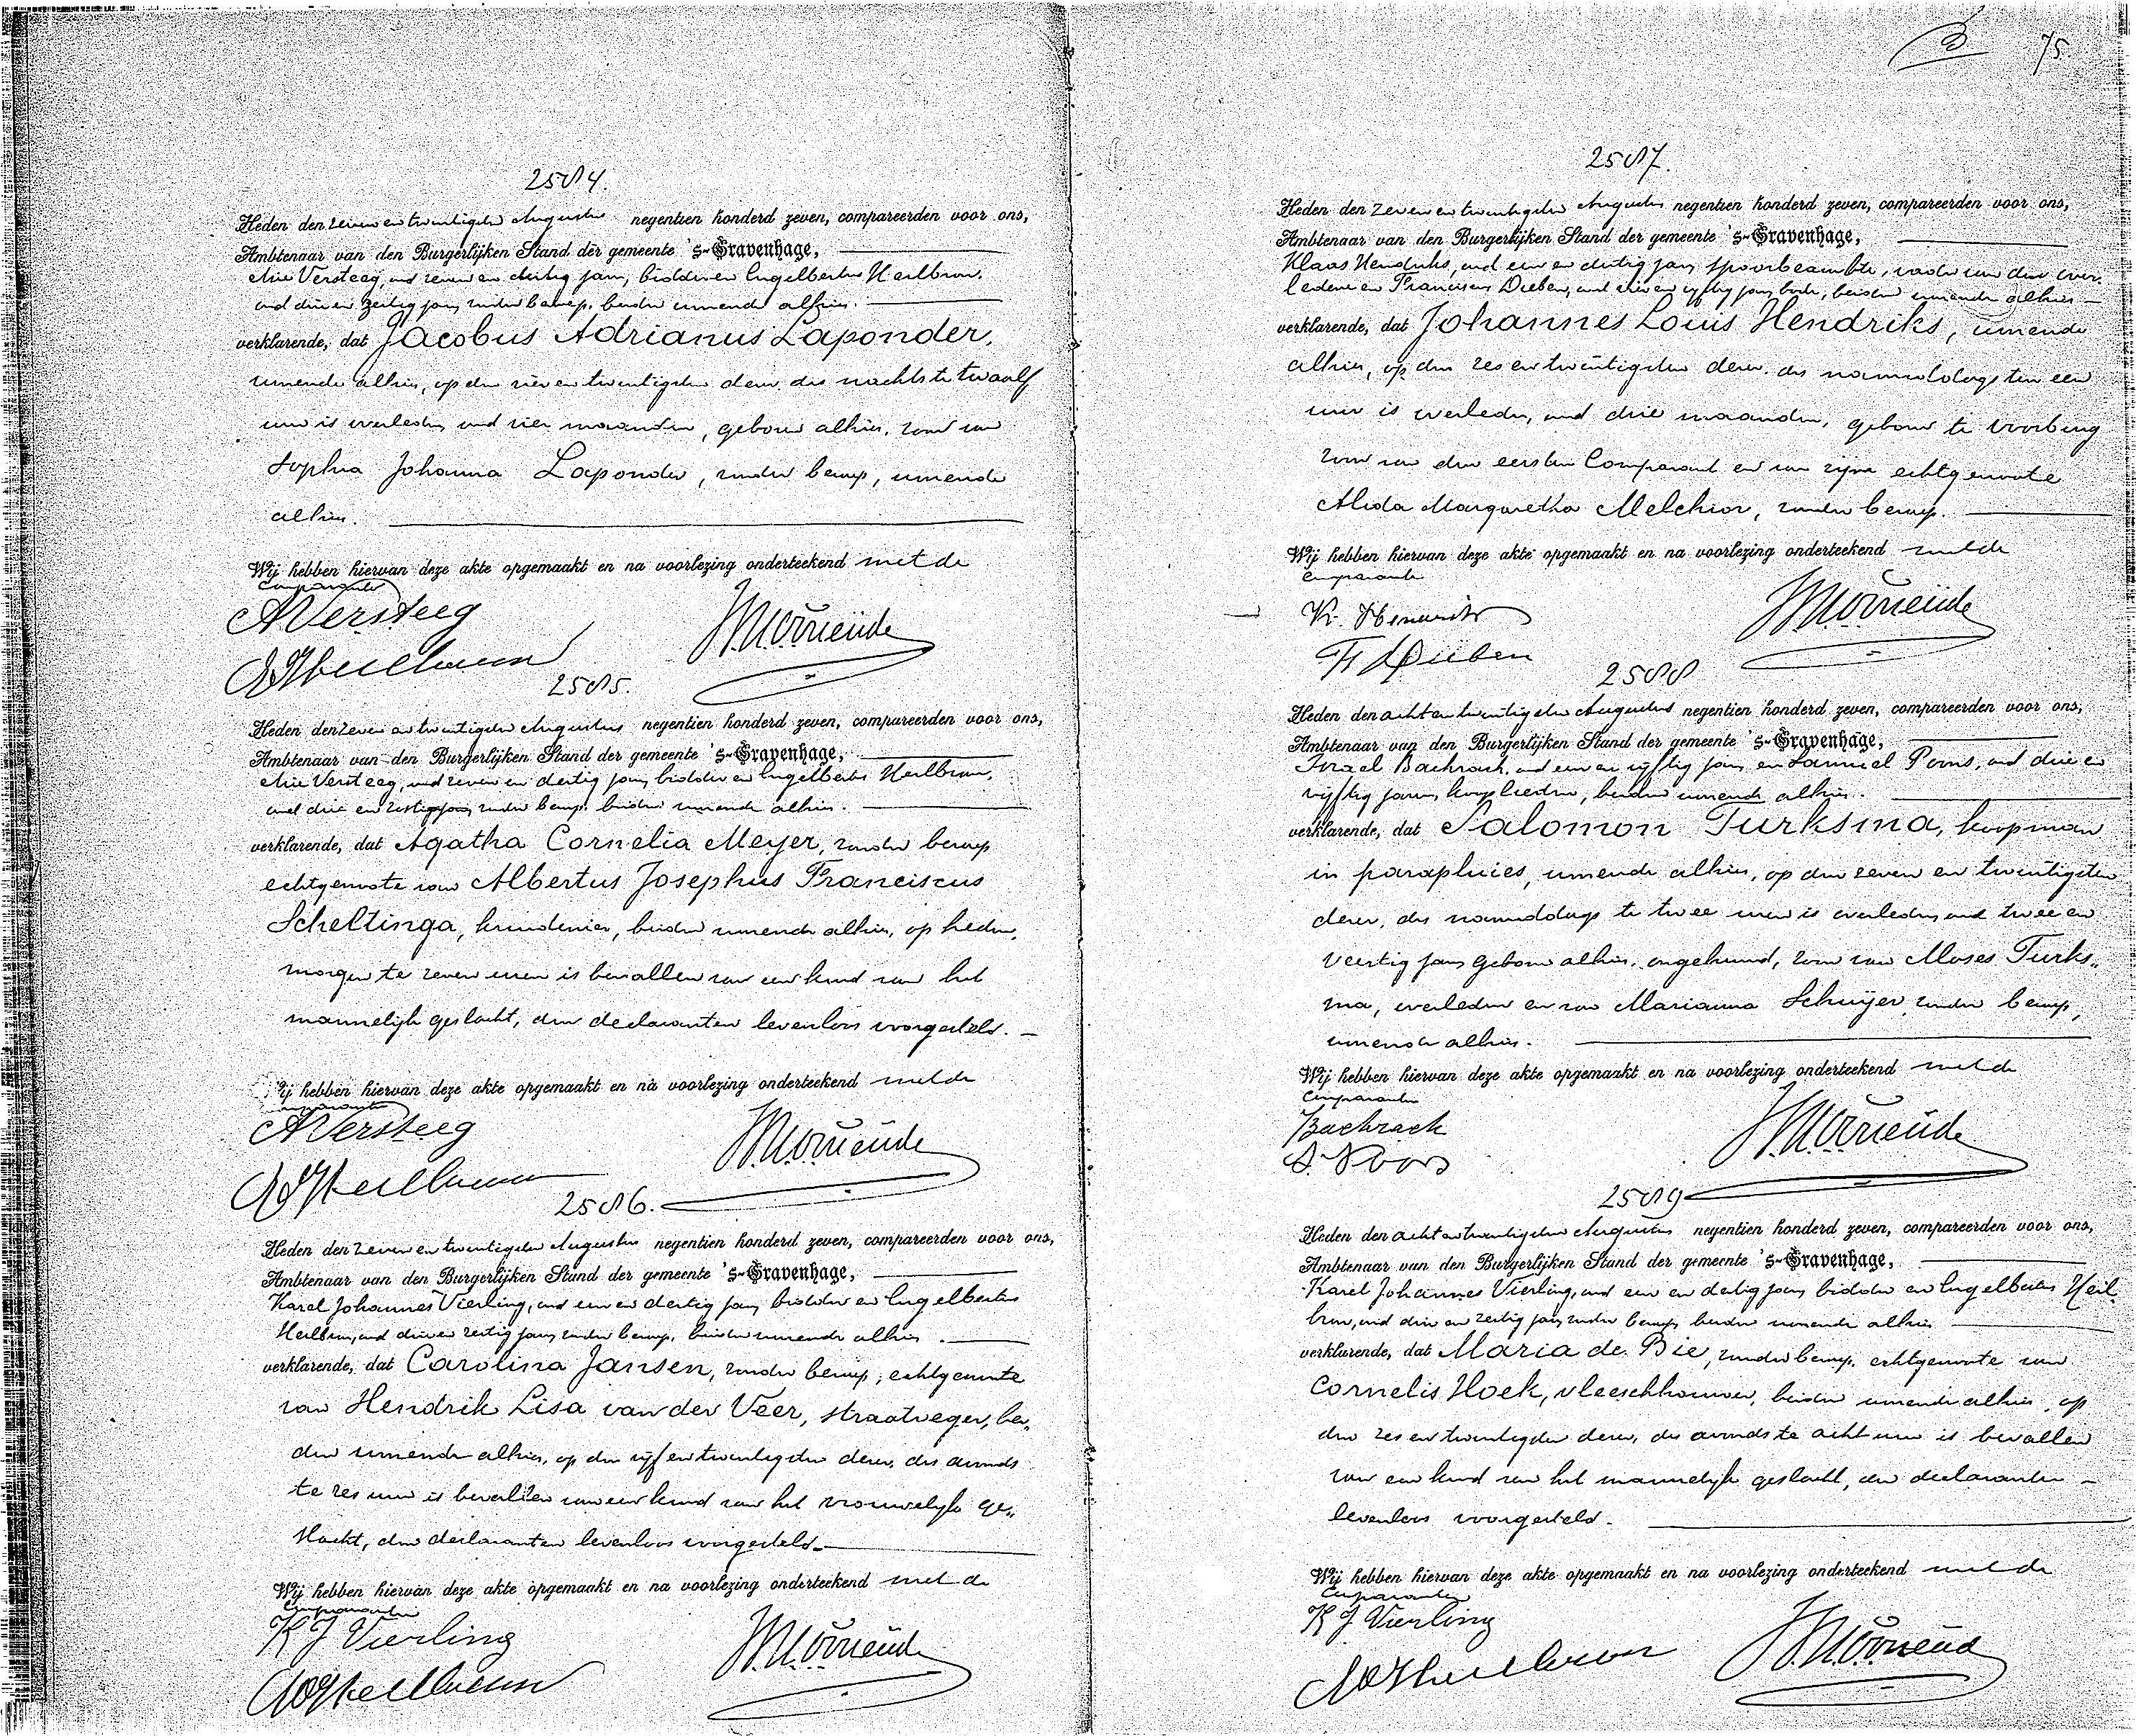 2584.
Heden den zeven en twintigsten Augustus negentien honderd zeven, compareerden voor ons,
Ambtenaar van den Burgerlijken Stand der gemeente 's-Gravenhage,
Arie Versteeg, oud zeven en dertig jaar, bidder en Engelbertus Heilbron,
oud drie en zestig jaar, zonder beroep, beiden wonende alhier.
verklarende, dat Jacobus Adrianus Laponder,
wonende alhier, op den vier en twintigsten dezer, des nachts te twaalf
ure is overleden, oud vier maanden, geboren alhier, zoon van
Sophia Johanna Laponder, zonder beroep, wonende
alhier.
Wij hebben hiervan deze akte opgemaakt en na voorlezing onderteekend met de
comparanten
AVersteeg
2585.
Heden den zeven en twintigsten Augustus negentien honderd zeven, compareerden voor ons,
Ambtenaar van den Burgerlijken Stand der gemeente 's-Gravenhage,
Arie Versteeg, oud zeven en dertig jaar, bidder en Engelbertus Heilbron,
oud drie en zestig jaar, zonder beroep, beiden wonende alhier.
verklarende, dat Agatha Cornelia Meyer, zonder beroep
echtgenoote van Albertus Josephus Franciscus
Scheltinga, kruidenier, beiden wonende alhier, op heden,
morgen te zeven uren is bevallen van een kind van het
mannelijk geslacht, den declaranten levenloos voorgesteld.
Wij hebben hiervan deze akte opgemaakt en na voorlezing onderteekend met de
comparanten
AVersteeg
2586.
Heden den zeven en twintigsten Augustus negentien honderd zeven, compareerden voor ons,
Ambtenaar van den Burgerlijken Stand der gemeente 's-Gravenhage,
Karel Johannes Vierling, oud een en dertig jaar, bidder en Engelbertus
Heilbron, oud drie en zestig jaar, zonder beroep, beiden wonende alhier.
verklarende, dat Carolina Jansen, zonder beroep, echtgenoote
van Hendrik Lisa van der Veer, straatveger, bei„
den wonende alhier, op den vijf en twintigsten dezer, des avonds
te zes uur is bevallen van een kind van het vrouwelijk ge„
slacht, den declaranten levenloos voorgesteld.
Wij hebben hiervan deze akte opgemaakt en na voorlezing onderteekend met de
comparanten
K J Vierling
75.
2587.
Heden den zeven en twintigsten Augustus negentien honderd zeven, compareerden voor ons,
Ambtenaar van den Burgerlijken Stand der gemeente 's-Gravenhage,
Klaas Hendriks, oud een en dertig jaar, spoorbeambte, vader van den over„
ledene en Franciscus Dieben, oud en vijftig jaar, beiden wonende alhier
verklarende, dat Johannes Louis Hendriks, wonende
alhier, op den zes en twintigsten dezer, des namiddags ten een
ure is overleden, oud drie maanden, geboren te Voorburg
zoon van den eersten Comparant en van zijne echtgenoote
Alida Margaretha Melchior, zonder beroep.
Wij hebben hiervan deze akte opgemaakt en na voorlezing onderteekend met de
comparanten
K. Hendriks
F Dieben
2588
Heden den acht en twintigsten Augustus negentien honderd zeven, compareerden voor ons,
Ambtenaar van den Burgerlijken Stand der gemeente 's-Gravenhage,
Izrael Bachrach, oud een en vijftig jaar en Samuel Poons, oud drie en
vijftig jaren, kooplieden, beiden wonende alhier.
verklarende, dat Salomon Turksma, koopman
in parapluies, wonende alhier, op den zeven en twintigsten
dezer, des namiddags te twee uren is overleden, oud twee en
veertig jaar, geboren alhier, ongehuwd, zoon van Moses Turks„
ma, overleden en van Marianna Schuijer, zonder beroep,
wonende alhier.
Wij hebben hiervan deze akte opgemaakt en na voorlezing onderteekend met de
comparanten
Bachrach
S. Poons
2589
Heden den acht en twintigsten Augustus negentien honderd zeven, compareerden voor ons,
Ambtenaar van den Burgerlijken Stand der gemeente 's-Gravenhage,
Karel Johannes Vierling, oud een en dertig jaar, bidder en Engelbertus Heil„
bron, oud drie en zestig jaar, zonder beroep, beiden wonende alhier
verklarende, dat Maria de Bie, zonder beroep, echtgenoote van
Cornelis Hoek, vleeschhouwer, beiden wonende alhier, op
den zes en twintigsten dezer, des avonds te acht uur is bevallen
van een kind van het mannelijk geslacht, den declaranten
levenloos voorgesteld.
Wij hebben hiervan deze akte opgemaakt en na voorlezing onderteekend met de
comparanten
K J Vierling